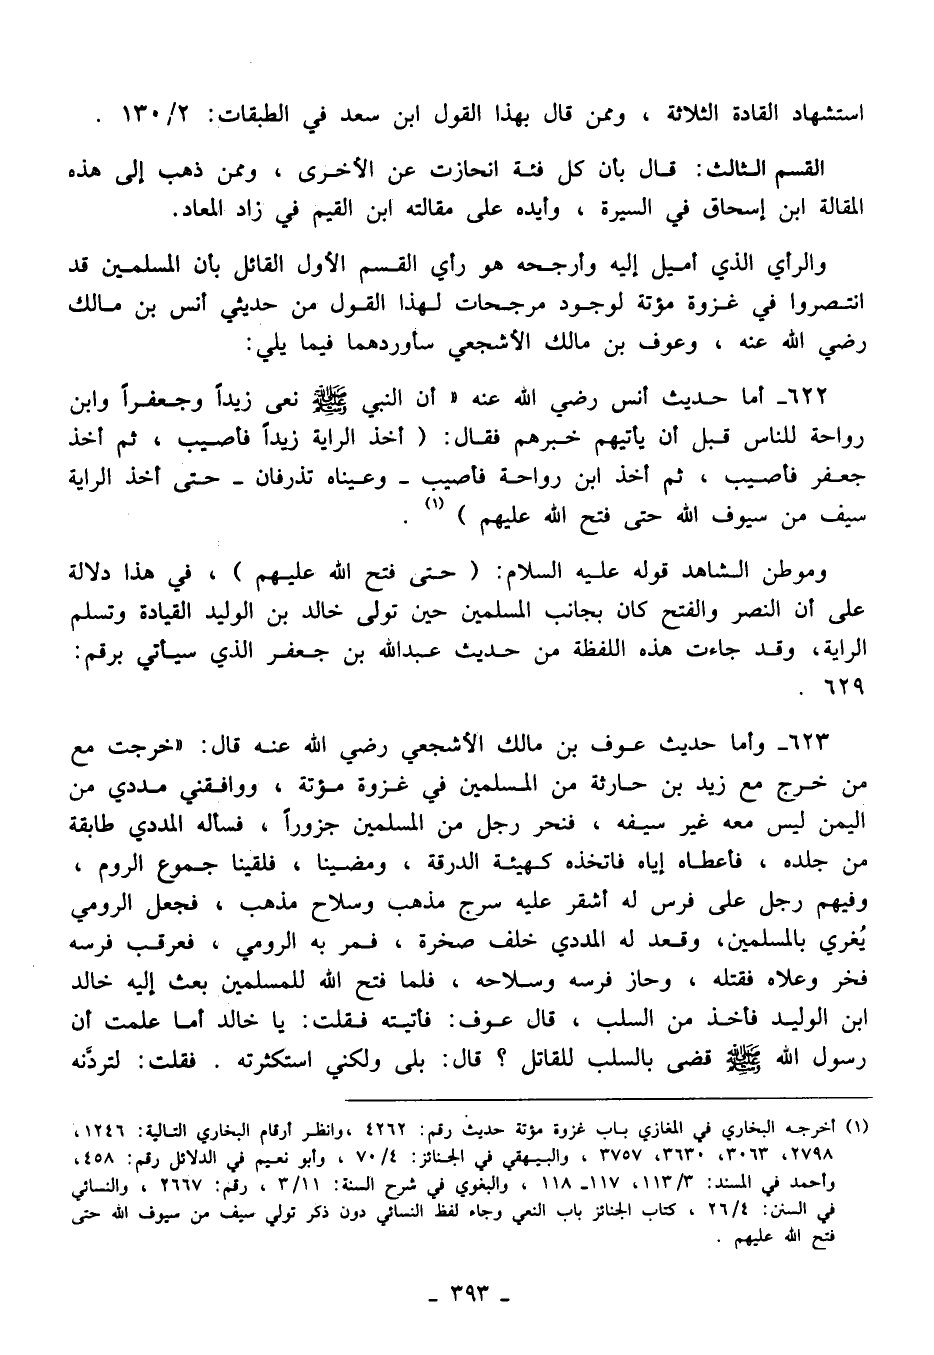 استشهاد القادة الثلاثة ، وممن قال بهذا القول ابن سعد في الطبقات: ١٣٠/٢ .
القسم الثالث: قال بأن كل فئة انحازت عن الأخرى ، وممن ذهب إلى هذه
المقالة ابن إسحاق في السيرة ، وأيده على مقالته ابن القيم في زاد المعاد.
والرأي الذي أميل إليه وأرجحه هو رأي القسم الأول القائل بأن المسلمين قد
انتصروا في غزوة مؤتة لوجود مرجحات لهذا القول من حديثي أنس بن مالك
رضي الله عنه ، وعوف بن مالك الأشجعي سأوردهما فيما يلي:
٦٢٢ـ أما حديث أنس رضي الله عنه « أن النبي ﷺ نعى زيداً وجعفراً وابن
رواحة للناس قبل أن يأتيهم خبرهم فقال: ( أخذ الراية زيداً فأصيب ، ثم أخذ
جعفر فأصيب ، ثم أخذ ابن رواحة فأصيب ـ وعيناه تذرفان ـ حتى أخذ الراية
سيف من سيوف الله حتى فتح الله عليهم ) (١) .
وموطن الشاهد قوله عليه السلام: ( حتى فتح الله عليهم ) ، في هذا دلالة
على أن النصر والفتح كان بجانب المسلمين حين تولى خالد بن الوليد القيادة وتسلم
الراية، وقد جاءت هذه اللفظة من حديث عبدالله بن جعفر الذي سيأتي برقم:
٦٢٩ .
٦٢٣ـ وأما حديث عوف بن مالك الأشجعي رضي الله عنه قال: «خرجت مع
من خرج مع زيد بن حارثة من المسلمين في غزوة مؤتة ، ووافقني مددي من
اليمن ليس معه غير سيفه ، فنحر رجل من المسلمين جزوراً ، فسأله المددي طابقة
من جلده ، فأعطاه إياه فاتخذه كهيئة الدرقة ، ومضينا ، فلقينا جموع الروم ،
وفيهم رجل على فرس له أشقر عليه سرج مذهب وسلاح مذهب ، فجعل الرومي
يُغري بالمسلمين، وقعد له المددي خلف صخرة ، فمر به الرومي ، فعرقب فرسه
فخر وعلاه فقتله ، وحاز فرسه وسلاحه ، فلما فتح الله للمسلمين بعث إليه خالد
ابن الوليد فأخذ من السلب ، قال عوف: فأتيته فقلت: يا خالد أما علمت أن
رسول الله ﷺ قضى بالسلب للقاتل ؟ قال: بلى ولكني استكثرته . فقلت: لتردَّنه
(١) أخرجه البخاري في المغازي باب غزوة مؤتة حديث رقم: ٤٢٦٢ ،وانظر أرقام البخاري التالية: ١٢٤٦،
٢٧٩٨، ٣٠٦٣، ٣٦٣٠، ٣٧٥٧ ، والبيهقي في الجنائز: ٧٠/٤ ، وأبو نعيم في الدلائل رقم: ٤٥٨،
وأحمد في المسند: ١١٣/٣، ١١٧ـ ١١٨ ، والبغوي في شرح السنة: ٣/١١ ، رقم: ٢٦٦٧ ، والنسائي
في السنن: ٢٦/٤ ، كتاب الجنائز باب النعي وجاء لفظ النسائي دون ذكر تولي سيف من سيوف الله حتى
فتح الله عليهم .
ـ ٣٩٣ ـ